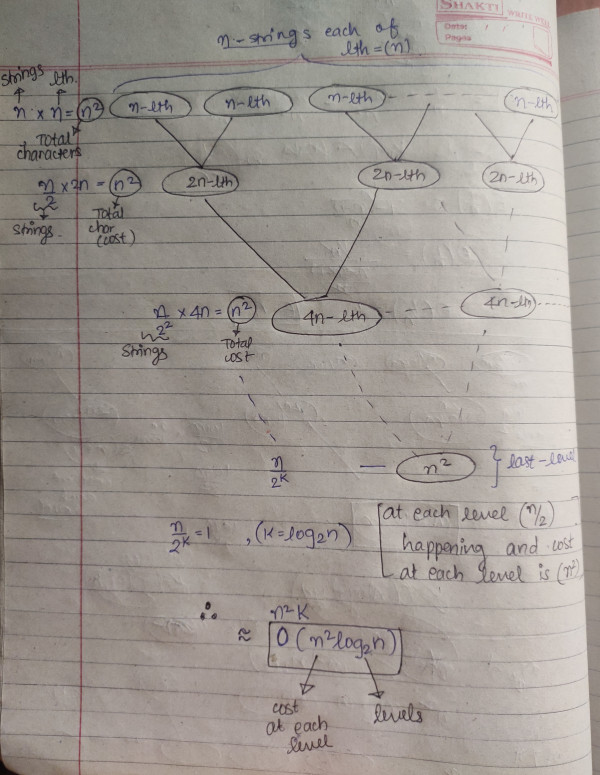 SHAKTI WRITE WELL
Date:
Pages
n-strings each of
lth=(n)
strings lth.
n × n = n²
Total
characters
n-lth n-lth n-lth n-lth
n/2 × 2n = n²
strings.
Total
char
(cost)
2n-lth 2n-lth 2n-lth
n/2² × 4n = n²
strings
Total
cost
4n-lth 4n-lth
n/2ᴷ — n² } last-level
n/2ᴷ = 1 , (K=log₂n)
at each level (n/2)
happening and cost
at each level is (n²)
∴ n²K
≈ O(n²log₂n)
cost
at each
level
levels